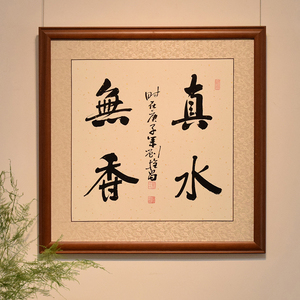 真水
無香
時在庚子年